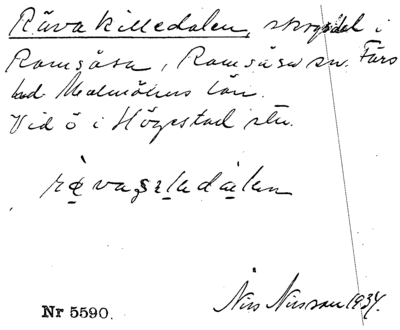 Rävakilledalen, skogsdal i
Ramsåsa, Ramsåsa sn. Färs
hd. Malmöhus län.
Vid ö i Högestad stn.
Nr 5590.
Nils Nilsson 1934.